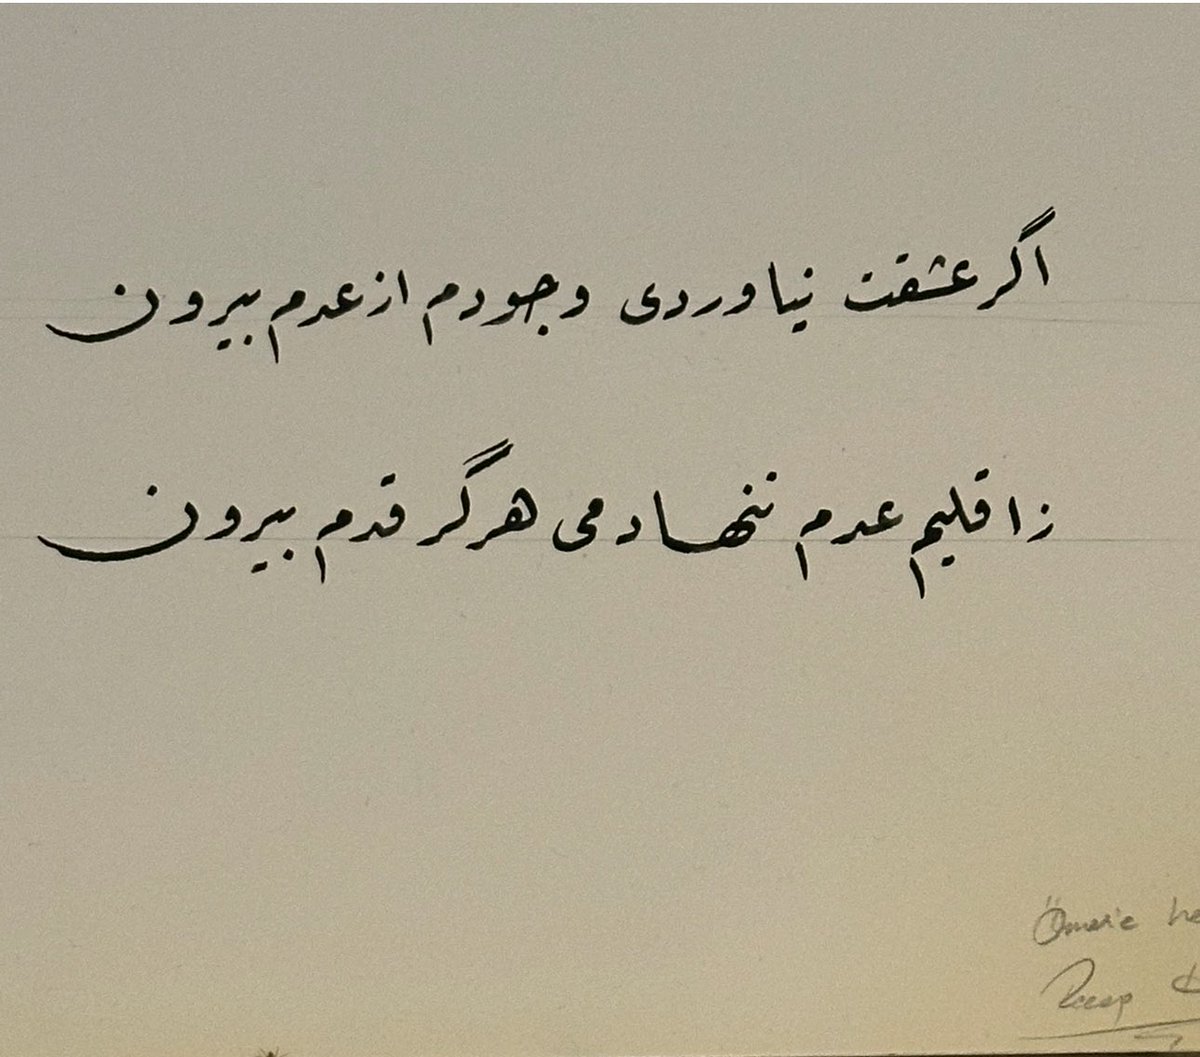 اگر عشقت نیاوردی وجودم از عدم بیرون
ز اقلیم عدم ننهادمی هرگر قدم بیرون
Ömer'e
Recep